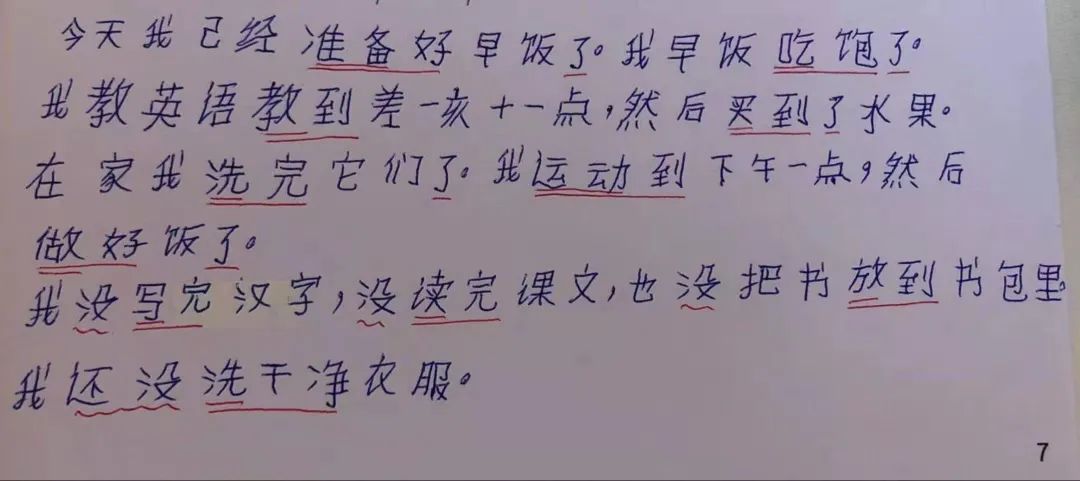 今天我已经准备好早饭了。我早饭吃饱了。
我教英语教到差一亥十一点,然后买到了水果。
在家我洗完它们了。我运动到下午一点,然后
做好饭了。
我没写完汉字,没读完课文,也没把书放到书包里。
我还没洗干净衣服。
7